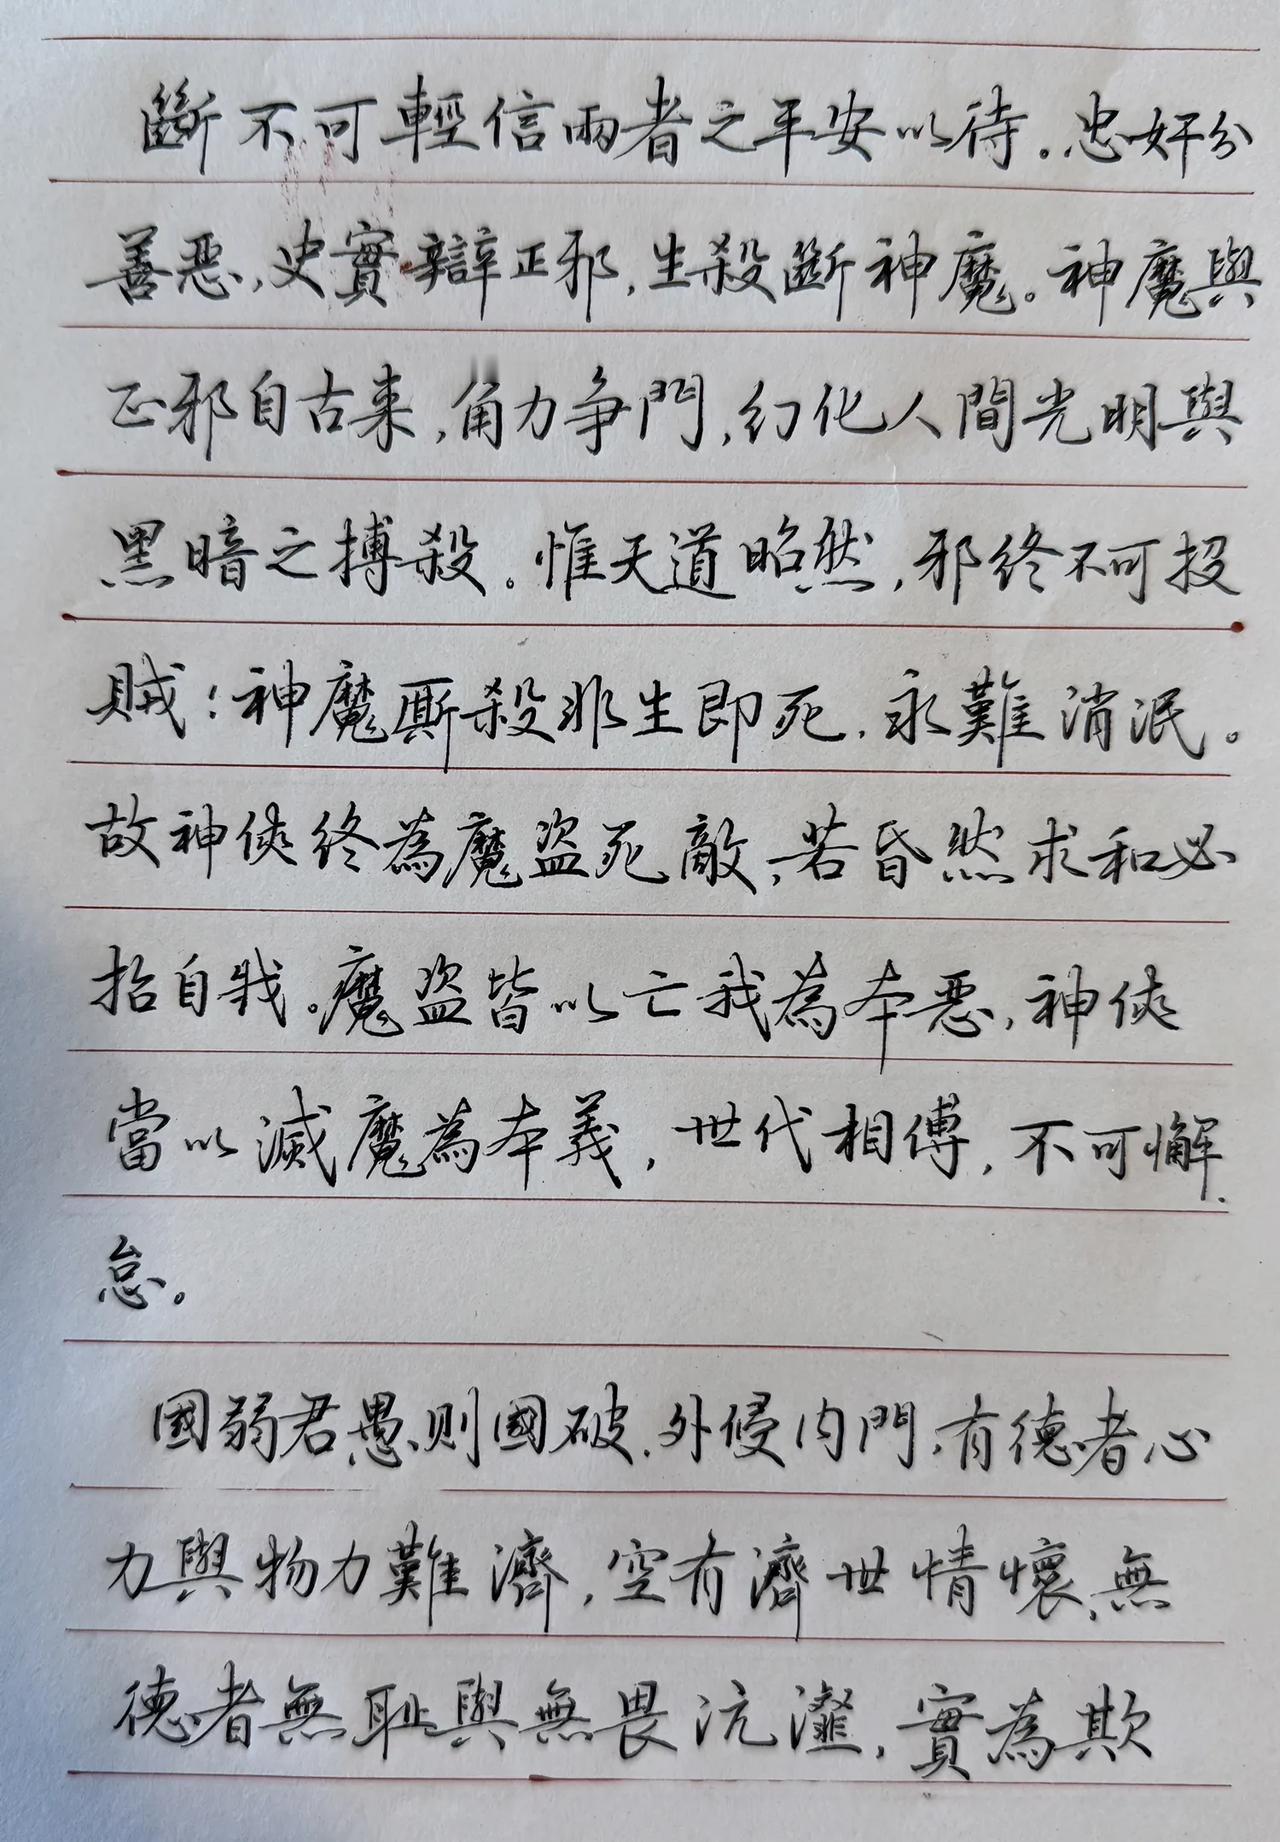 斷不可輕信兩者之平安以待。忠奸分
善惡，史實辯正邪，生殺斷神魔。神魔與
正邪自古来，角力争門，幻化人間光明與
黑暗之搏殺。惟天道昭然，邪終不可投
賊！神魔厮殺非生即死，永難消泯。
故神俠終為魔盜死敵，若昏然求和必
抬自戕。魔盜皆以亡我為本惡，神俠
當以滅魔為本義，世代相傅，不可懈
怠。
國弱君愚則國破，外侵内門，有德者心
力與物力難濟，空有濟世情懷，無
德者無耻與無畏沆瀣，實為欺